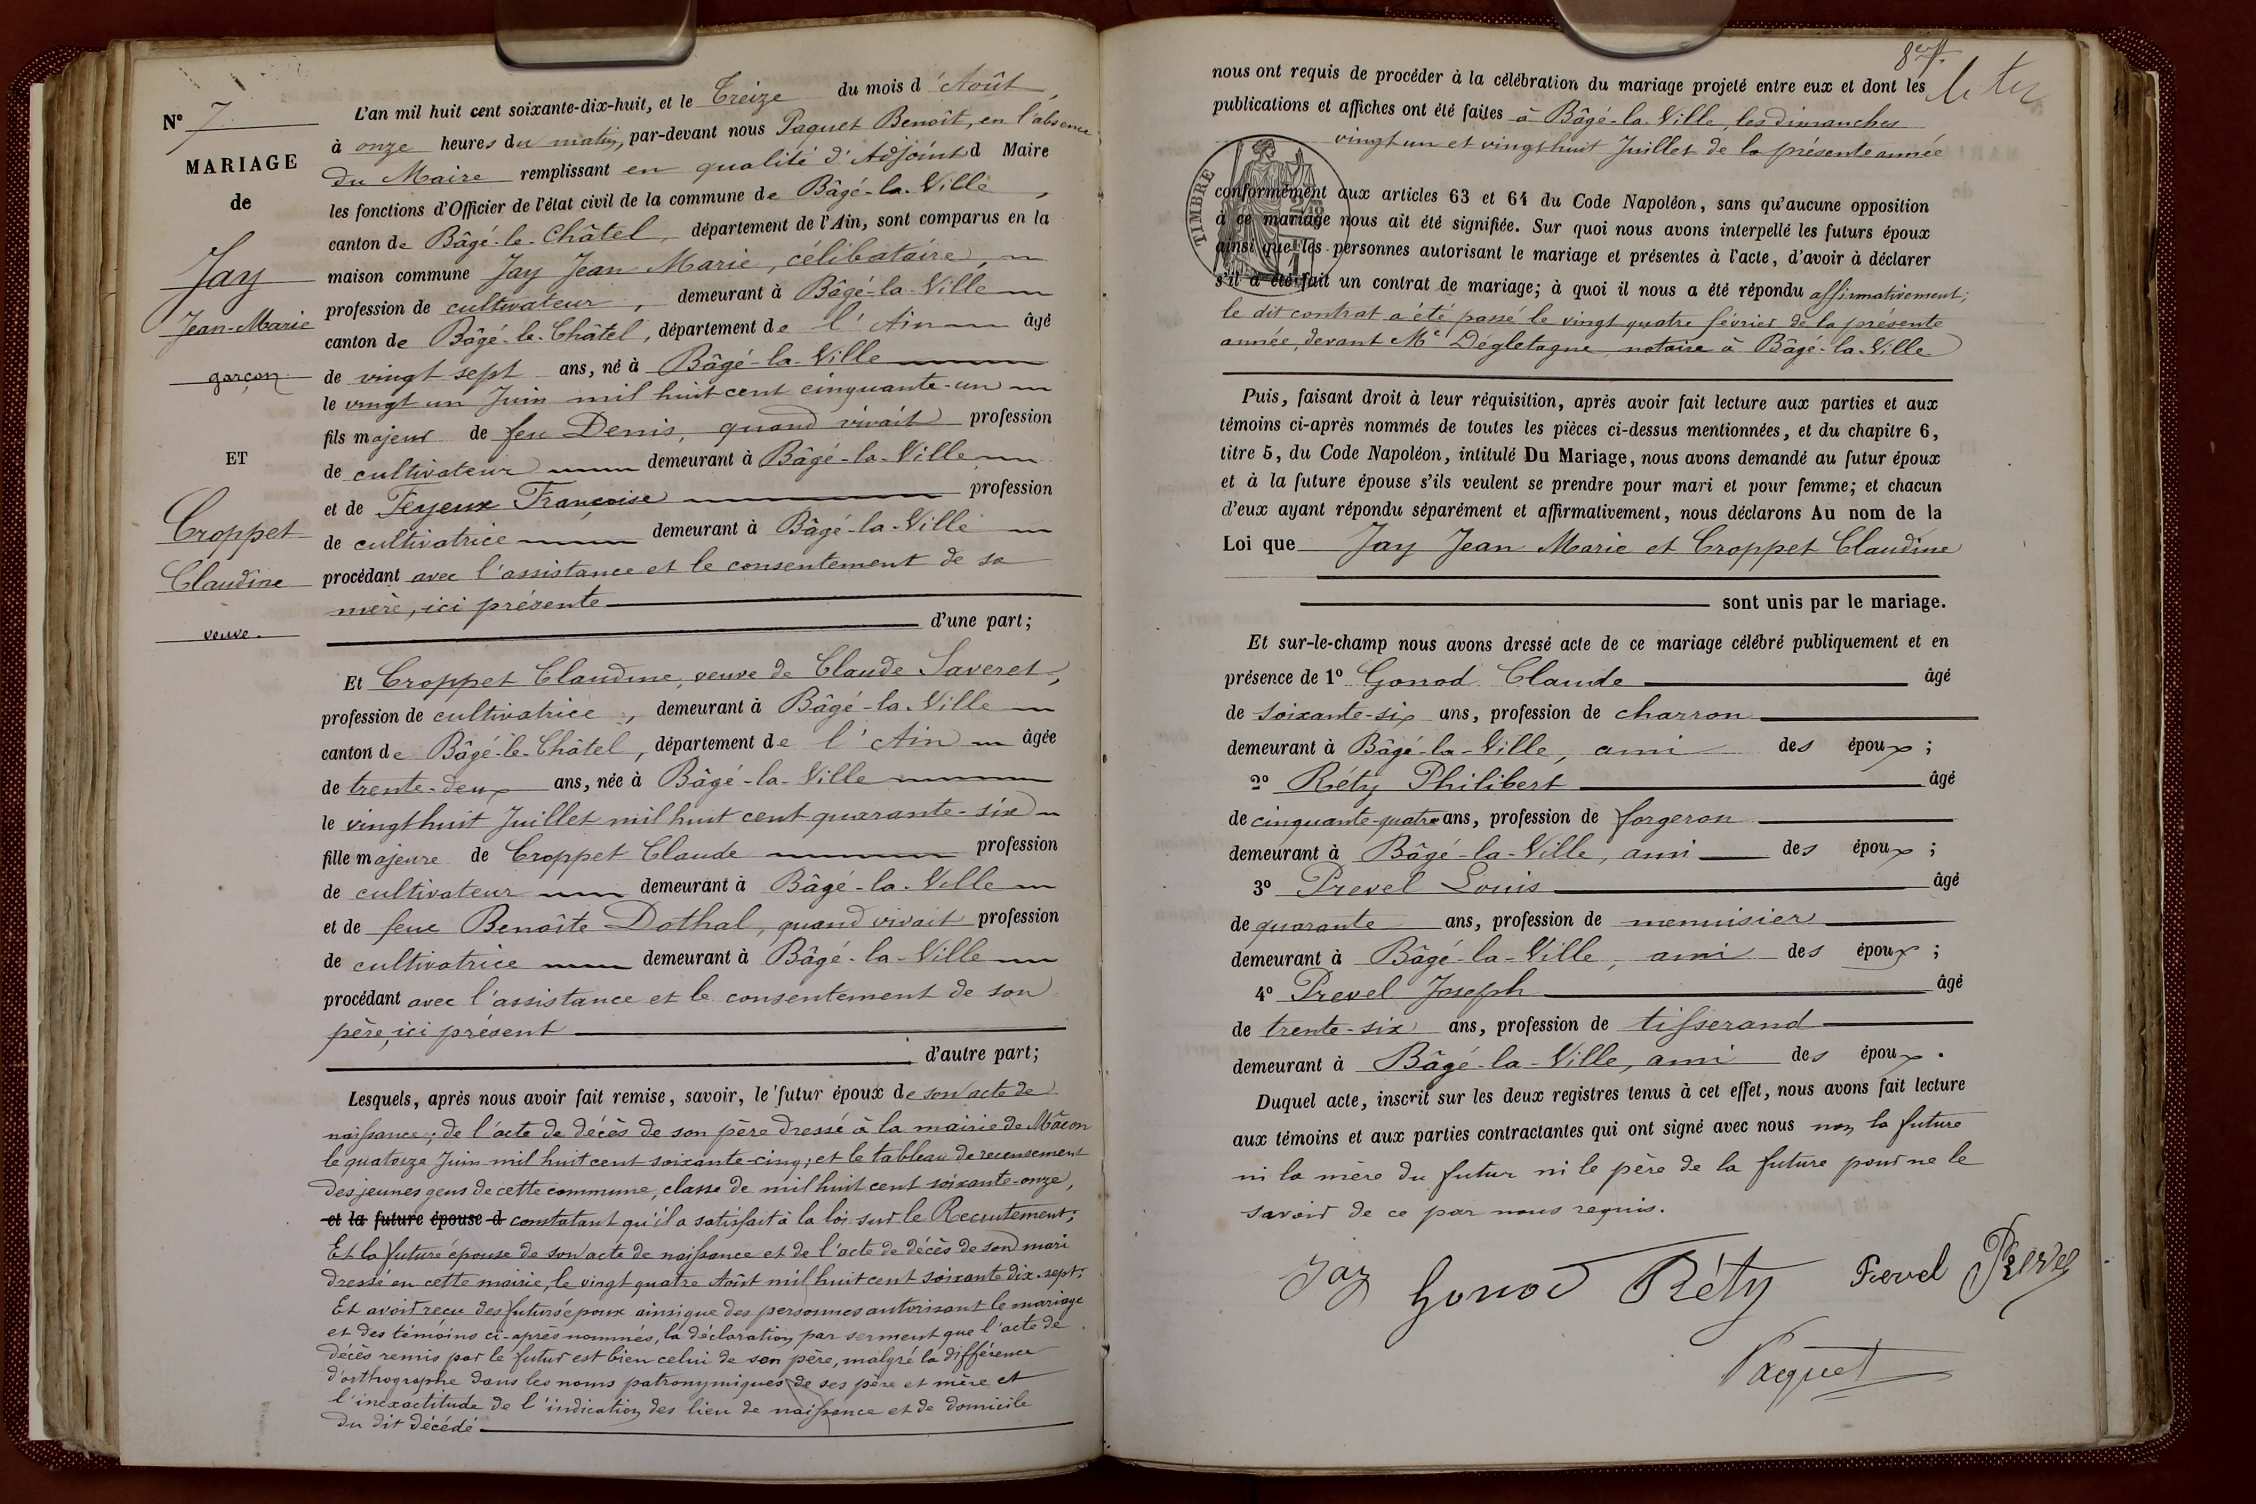 N° 7
MARIAGE
de
Jay
Jean-Marie
garçon
ET
Croppet
Claudine
veuve.
L'an mil huit cent soixante-dix-huit, et le Treize du mois d'Août,
à onze heures du matin, par-devant nous Paquet Benoit, en l'absence
du Maire remplissant en qualité d'Adjoint d Maire
les fonctions d'Officier de l'état civil de la commune de Bâgé-la-Ville,
canton de Bâgé-le-Châtel, département de l'Ain, sont comparus en la
maison commune Jay Jean Marie, célibataire,
profession de cultivateur, demeurant à Bâgé-la-Ville
canton de Bâgé-le-Châtel, département de l'Ain âgé
de vingt sept ans, né à Bâgé-la-Ville
le vingt un Juin mil huit cent cinquante-un
fils majeur de feu Denis, quand vivait profession
de cultivateur demeurant à Bâgé-la-Ville
et de Feyeux Françoise profession
de cultivatrice demeurant à Bâgé-la-Ville
procédant avec l'assistance et le consentement de sa
mère, ici présente
d'une part;
Et Croppet Claudine, veuve de Claude Saveret,
profession de cultivatrice, demeurant à Bâgé-la-Ville
canton de Bâgé-le-Châtel, département de l'Ain âgée
de trente-deux ans, née à Bâgé-la-Ville
le vingt huit Juillet mil huit cent quarante-six
fille majeure de Croppet Claude profession
de cultivateur demeurant à Bâgé-la-Ville
et de feue Benoîte Dothal, quand vivait profession
de cultivatrice demeurant à Bâgé-la-Ville
procédant avec l'assistance et le consentement de son
père, ici présent
d'autre part;
Lesquels, après nous avoir fait remise, savoir, le futur époux de son acte de
naissance; de l'acte de décès de son père dressé à la mairie de Mâcon
le quatorze Juin mil huit cent soixante-cinq; et le tableau de recensement
des jeunes gens de cette commune, classe de mil huit cent soixante-onze,
et la future épouse d constatant qu'il a satisfait à la loi sur le Recrutement;
Et la future épouse de son acte de naissance et de l'acte de décès de son mari
dressé en cette mairie, le vingt quatre Août mil huit cent soixante dix-sept;
Et avoir reçu des futurs époux ainsi que des personnes autorisant le mariage
et des témoins ci-après nommés, la déclaration par serment que l'acte de
décès remis par le futur est bien celui de son père, malgré la différence
d'orthographe dans les noms patronymiques de ses père et mère et
l'inexactitude de l'indication des lieu de naissance et de domicile
du dit décédé
nous ont requis de procéder à la célébration du mariage projeté entre eux et dont les
publications et affiches ont été faites à Bâgé-la-Ville, les dimanches
vingt un et vingt huit Juillet de la présente année
TIMBRE
conformément aux articles 63 et 64 du Code Napoléon, sans qu'aucune opposition
à ce mariage nous ait été signifiée. Sur quoi nous avons interpellé les futurs époux
ainsi que les personnes autorisant le mariage et présentes à l'acte, d'avoir à déclarer
s'il a été fait un contrat de mariage; à quoi il nous a été répondu affirmativement;
le dit contrat a été passé le vingt quatre février de la présente
année, devant Me Dégletagne notaire à Bâgé-la-Ville
Puis, faisant droit à leur réquisition, après avoir fait lecture aux parties et aux
témoins ci-après nommés de toutes les pièces ci-dessus mentionnées, et du chapitre 6,
titre 5, du Code Napoléon, intitulé Du Mariage, nous avons demandé au futur époux
et à la future épouse s'ils veulent se prendre pour mari et pour femme; et chacun
d'eux ayant répondu séparément et affirmativement, nous déclarons Au nom de la
Loi que Jay Jean Marie et Croppet Claudine
sont unis par le mariage.
Et sur-le-champ nous avons dressé acte de ce mariage célébré publiquement et en
présence de 1° Gonod Claude âgé
de soixante-six ans, profession de charron
demeurant à Bâgé-la-Ville, ami des époux;
2° Réty Philibert âgé
de cinquante-quatre ans, profession de forgeron
demeurant à Bâgé-la-Ville, ami des époux;
3° Prevel Louis âgé
de quarante ans, profession de menuisier
demeurant à Bâgé-la-Ville, ami des époux;
4° Prevel Joseph âgé
de trente-six ans, profession de tisserand
demeurant à Bâgé-la-Ville, ami des époux.
Duquel acte, inscrit sur les deux registres tenus à cet effet, nous avons fait lecture
aux témoins et aux parties contractantes qui ont signé avec nous non la future
ni la mère du futur ni le père de la future pour ne le
savoir de ce par nous requis.
Jay Gonod Réty Prevel Prevel
Paquet